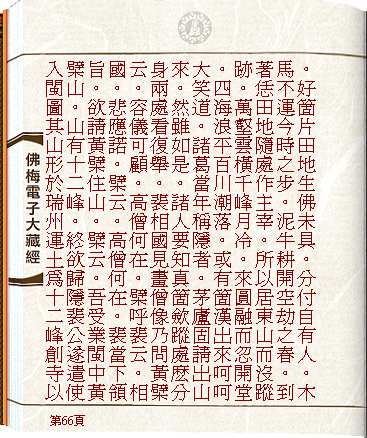 。好箇片田地生佛未具。分付自有人。木
馬不運今時之步。泥牛耕開空劫之春。到
著恁田地隨處作主宰。所以居東山而沒蹤
跡。萬壑雲橫千峰月冷。來圓融而忽開堂
。四海浪平百川潮落。或有箇漢出來呵呵
大笑道。諸葛當年稱隱者。茅廬固請出山
來。然雖如是。諸人要知真箇歛蹤處麼分
身兩處看復舉。裴相國見畫僧像乃問黃檗
云。容儀可顧。高僧何在。檗呼裴云。相
國。悲應諾。檗云。高僧何在。裴當下領
旨。欲請黃檗住山。檗云。吾受業閩中黃
檗山。山有十二峰。終欲歸隱裴公遂遣使
入閩圖其山形於瑞州運土為十二峰創寺以
佛梅電子大藏經
第66頁